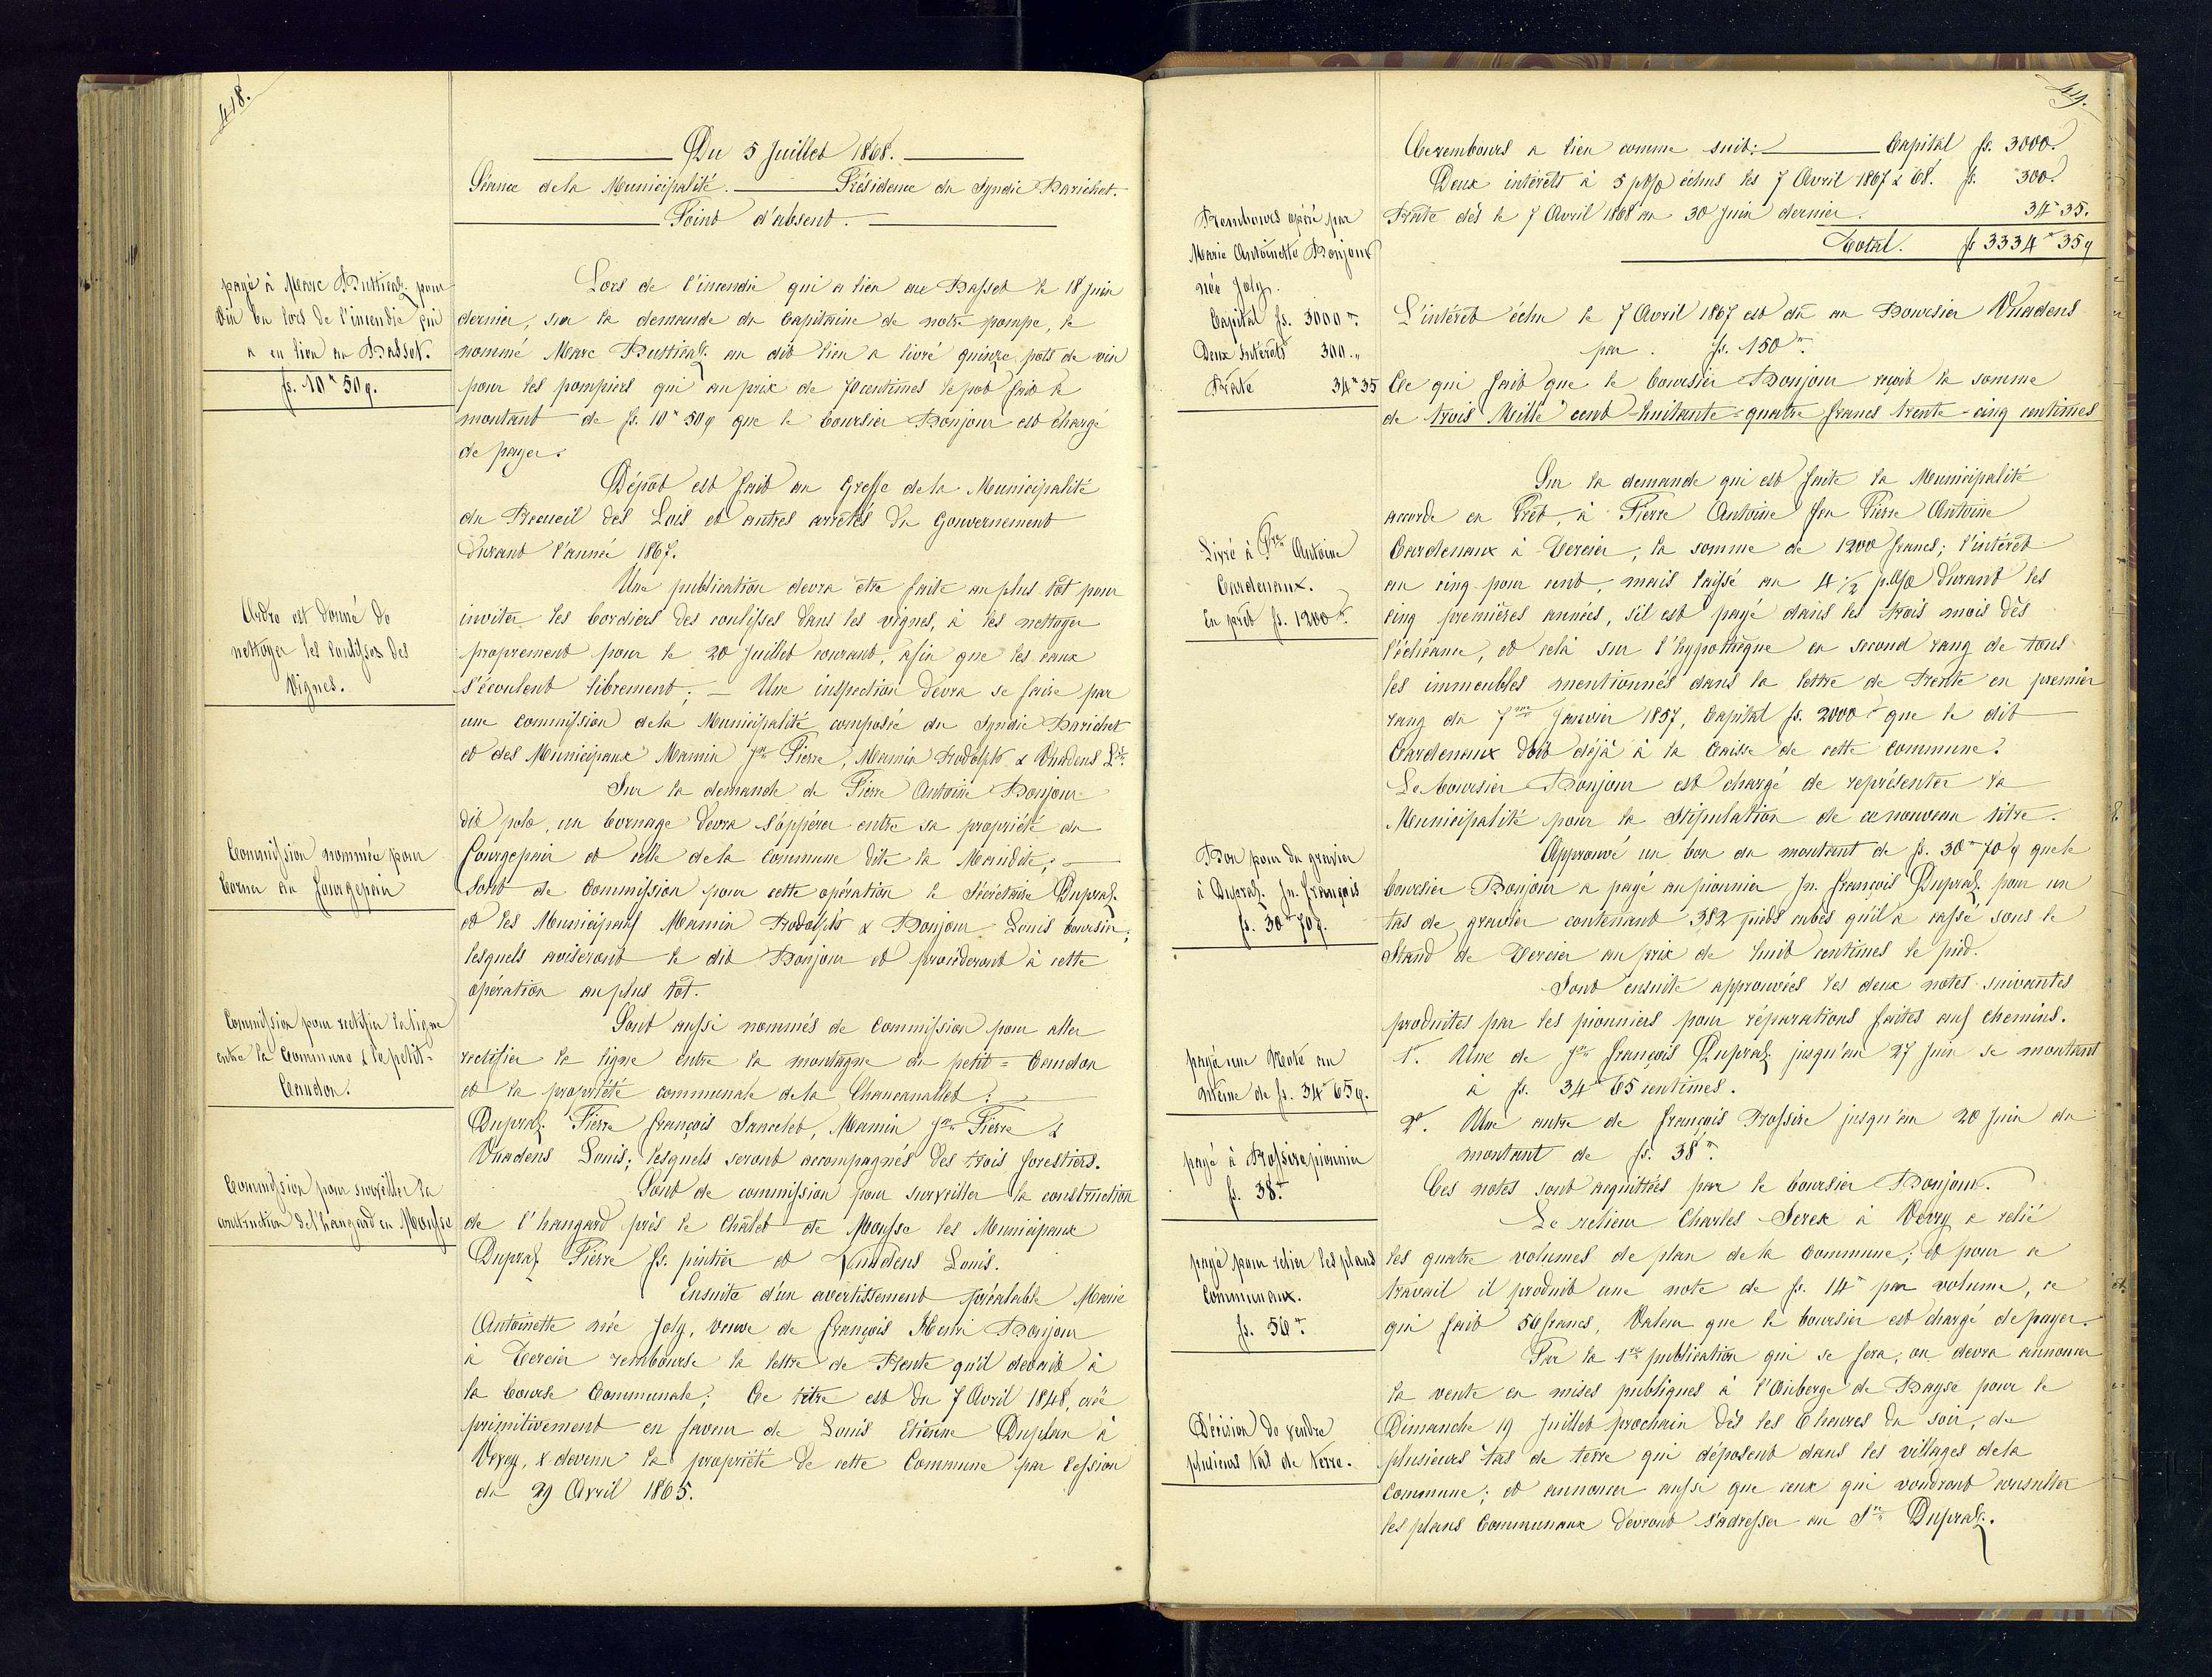 418.
Du 5 Juillet 1868.
Séance de la Municipalité. Présidence du Syndic Barichet.
Point d'absent.
payé à Marc Buttical pour
Vin bu lors de l'incendie qui
a eu lieu au Basset.
fs. 10" 50 c.
Lors de l'incendie qui a lieu au Basset le 18 juin
dernier, sur la demande du Capitaine de notre pompe, le
nommé Marc Butticaz au dit lieu a livré quinze pots de vin
pour les pompiers qui au prix de 70 centimes le pot fait le
montant de fs. 10" 50 c que le boursier Bonjour est chargé
de payer.
Dépôt est fait au Greffe de la Municipalité
du Recueil des Lois et autres arrêtés du Gouvernement
durant l'année 1867.
Ordre est donné de
nettoyer les Coulisses des
Vignes.
Une publication devra être faite au plus tôt pour
inviter les bordiers des coulisses dans les vignes, à les nettoyer
proprement pour le 20 Juillet courant, afin que les eaux
s'écoulent librement; — Une inspection devra se faire par
une commission de la Municipalité composée du Syndic Barichet
et des Municipaux Mamin Jn Pierre, Mamin Rodolph & Vuadens Ls.
Commission nommée pour
borner au Fourgepain
Sur la demande de Pierre Antoine Bonjour
dit polo, un bornage devra s'oppérer entre sa propriété du
Fourgepain et celle de la Commune dite la Maudite; —
Sont de Commission pour cette opération le Sécrétaire Dupraz
et les Municipaux Mamin Rodolph & Bonjour Louis boursier;
lesquels aviseront le dit Bonjour et procèderont à cette
opération au plus tôt.
Commission pour rectifier la ligne
entre la Commune & le petit-
Caudon.
Sont aussi nommés de Commission pour aller
rectifier la ligne entre la montagne du petit-Caudon
et la propriété communale de la Chaucanallet: —
Dupraz Pierre François Sancelet, Mamin Jn Pierre &
Vuadens Louis; lesquels seront accompagnés des trois forestiers.
Commission pour surveiller la
construction de l'hangard en Mousse
Sont de commission pour surveiller la construction
de l'hangard près le Châlet de Mousse les Municipaux
Dupraz Pierre fs. pintier et Vuadens Louis.
Ensuite d'un avertissement préalable Marie
Antoinette née Joly, veuve de François Henri Bonjour
à Tercier rembourse la lettre de Rente qu'il devait à
la bourse Communale; Ce titre est du 7 Avril 1848, créé
primitivement en faveur de Louis Etienne Duplan à
Vevey, & devenu la propriété de cette Commune par Cession
du 29 Avril 1865.
419.
Ce rembours a lieu comme suit: Capital fs. 3000.
Deux intérêts à 5 p% échus les 7 Avril 1867 & 68. fs. 300.
Prate dès le 7 Avril 1868 au 30 Juin dernier. 34" 35.
Total. fs 3334" 35 c
Rembours opéré par
Marie Antoinette Bonjour
née Joly.
Capital fs. 3000".
Deux Intérêts 300."
Prate 34" 35
L'intérêt échu le 7 Avril 1867 est dû au Boursier Vuadens
par. fs. 150".
Ce qui fait que le boursier Bonjour reçoit la somme
de trois Mille cent huitante-quatre francs trente-cinq centimes
Livré à Pre Antoine
Cardenaux.
En prêt fs. 1200".
Sur la demande qui est faite la Municipalité
accorde en Prêt, à Pierre Antoine feu Pierre Antoine
Cardenaux à Tercier, la somme de 1200 francs; l'intérêt
au cinq pour cent, mais laissé au 4 1/2 p.% durant les
cinq premières années, s'il est payé dans les trois mois dès
l'échéance, et celà sur l'hypothèque en second rang de tous
les immeubles mentionnés dans la lettre de Rente en premier
rang du 7me Janvier 1857, Capital fs. 2000" que le dit
Cardenaux doit déjà à la Caisse de cette Commune.
Le boursier Bonjour est chargé de représenter la
Municipalité pour la Stipulation de ce nouveau titre.
Bon pour du gravier
à Dupraz Jn François
fs. 30" 70 c.
Approuvé un bon du montant de fs. 30" 70 c que le
boursier Bonjour a payé au pionnier Jn. François Dupraz pour un
tas de gravier contenant 382 pieds cubes qu'il a cassé sous le
Stand de Tercier au prix de huit centimes le pied.
Sont ensuite approuvées les deux notes suivantes
produites par les pionniers pour réparations faites aux Chemins.
payé une Note au
même de fs. 34" 65 c.
1°. Une de Jn François Dupraz jusqu'au 27 Juin se montant
à fs. 34" 65 centimes.
payé à Rossire pionnier
fs. 38".
2°. Une autre de François Rossire jusqu'au 20 Juin du
montant de fs. 38".
Ces notes sont acquittées par le boursier Bonjour.
payé pour relier les plans
Communaux.
fs. 56".
Le relieur Charles Serex à Vevey a relié
les quatre volumes de plan de la Commune; et pour ce
travail il produit une note de fs. 14" par volume, ce
qui fait 56 francs, Valeur que le boursier est chargé de payer.
Décision de vendre
plusieurs tas de terre.
Par la 1re publication qui se fera, on devra annoncer
la vente en mises publiques à l'Auberge de Bayse pour le
Dimanche 19 Juillet prochain dès les 6 heures du soir, de
plusieurs tas de terre qui déposent dans les villages de la
Commune; et annoncer aussi que ceux qui voudront consulter
les plans Communaux devront s'adresser au Sre Dupraz.